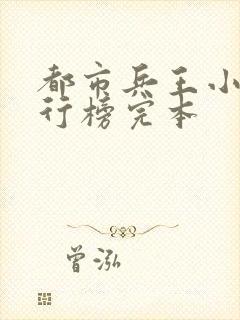 都市兵王小
行榜完本
曾泓